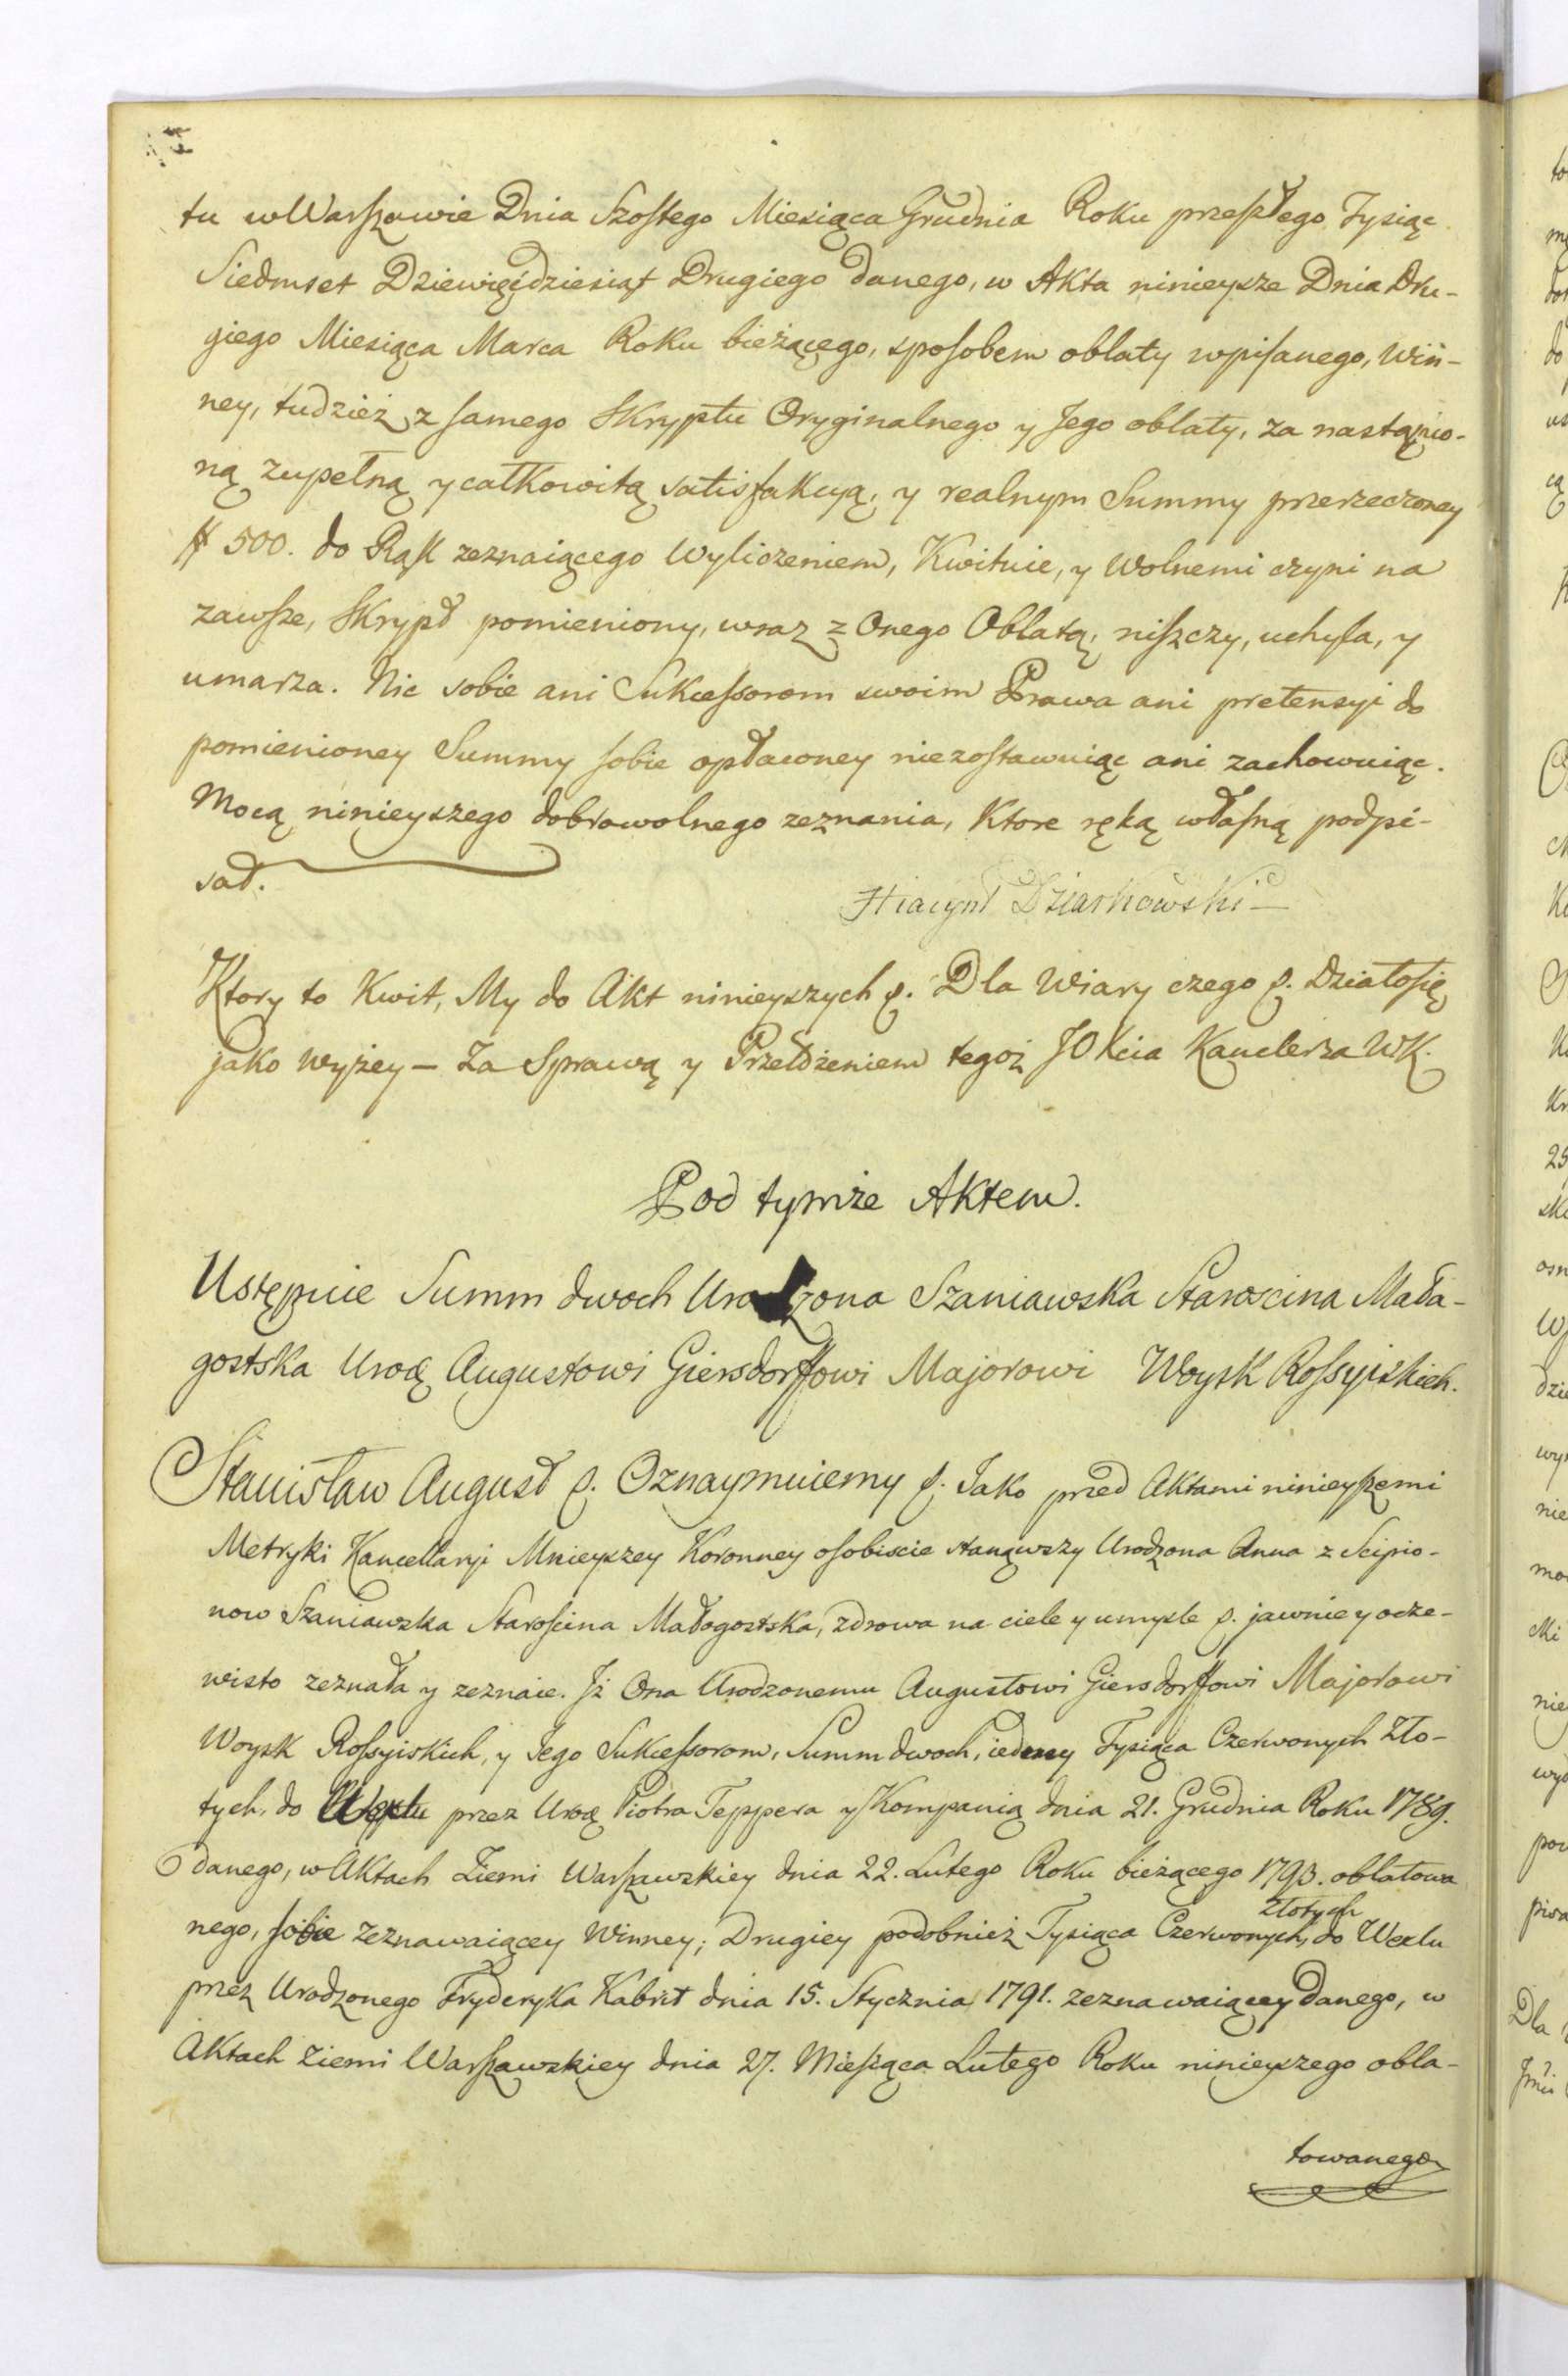 tu w Warszawie Dnia Szostego Miesiąca Grudnia Roku przeszłego Tysiąc
Siedmset Dziewięćdziesiąt Drugiego danego, w Akta ninieysze Dnia Dru-
giego Miesiąca Marca Roku bieżącego, sposobem oblaty wpisanego, Win-
ney, tudzież z samego Skryptu Oryginalnego y Jego oblaty, za nastąpio-
ną zupełną y całkowitą satisfakcyą, y realnym Summy przerzeczoney
# 500. do Rąk zeznaiącego Wyliczeniem, Kwituie, y Wolnemi czyni na
zawsze, Skrypt pomieniony, wraz z Onego Oblatą, niszczy, uchyla, y
umarza. Nic sobie ani Sukcessorom swoim Prawa ani pretensyi do
pomienioney Summy sobie opłaconey niezostawuiąc ani zachowuiąc.
Mocą ninieyszego dobrowolnego zeznania, Ktore ręką własną podpi-
sał.
Hiacynt Dziarkowski
Ktory to Kwit, My do Akt ninieyszych p. Dla Wiary czego p. Działo się
jako wyżey – Za Sprawą y Przełożeniem tegoż JO Kcia Kanclerza WK.
Pod tymże Aktem.
Ustępuie Summ dwoch Urodzona Szaniawska Starościna Mała-
gostska Urodę Augustowi Giersdorffowi Majorowi Woysk Rossyiskich.
Stanisław August p. Oznaymuiemy p. Jako przed Aktami ninieyszemi
Metryki Kancellaryi Mnieyszey Koronney osobiscie stanąwszy Urodzona Anna z Scipio-
now Szaniawska Starościna Małogostska, zdrowa na ciele y umysle p. jawnie y ocze-
wisto zeznała y zeznaie. Jż Ona Urodzonemu Augustowi Giersdorffowi Majorowi
Woysk Rossyiskich, y Jego Sukcessorom, Summ dwoch, iedney Tysiąca Czerwonych Zło-
tych, do Wexlu przez Urodę Piotra Teppera y Kompanią dnia 21. Grudnia Roku 1789.
danego, w Aktach Ziemi Warszawskiey dnia 22. Lutego Roku bieżącego 1793. oblatowa
nego, sobie zeznawaiącey Winney; Drugiey podobnież Tysiąca Czerwonych złotych do Wexlu
przez Urodzonego Fryderyka Kabrit dnia 15. Stycznia 1791. zeznawaiącey Danego, w
Aktach Ziemi Warszawskiey dnia 27. Miesiąca Lutego Roku ninieyszego obla-
towanego